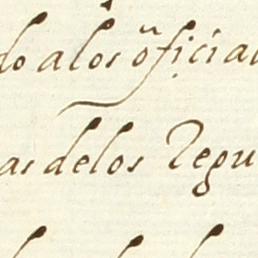 do alos oficia
as delos Regu